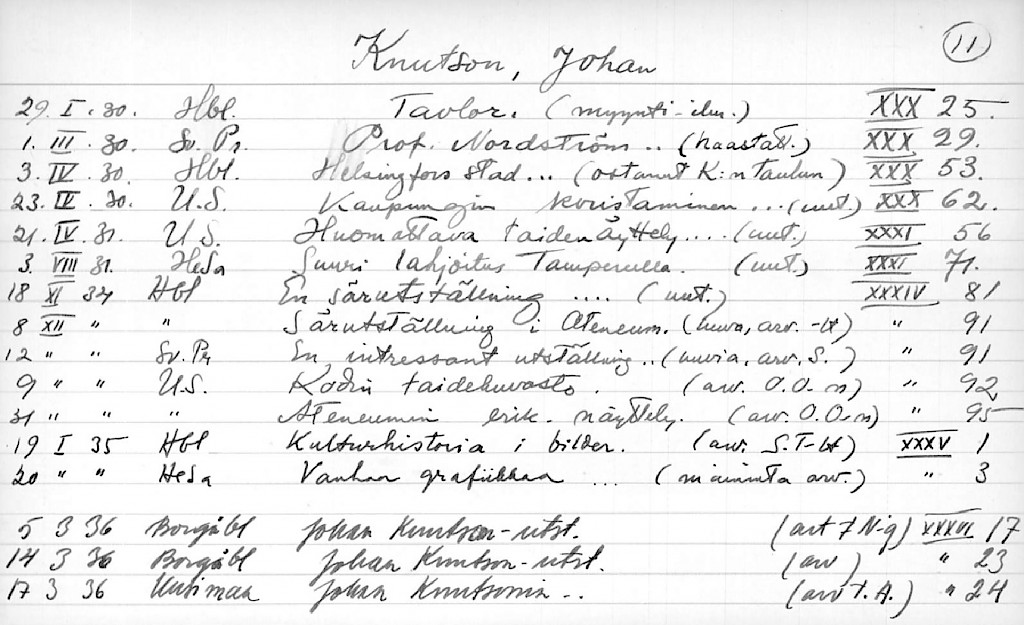 11
Knutson, Johan
29. I. 30. Hbl. Tavlor. (myynti-ilm.) XXX 25.
1. III. 30. Sv. Pr. Prof. Nordström.. (haastatt.) XXX 29.
3. IV. 30. Hbl. Helsingfors stad... (ostanut K:n taulun) XXX 53.
23. IV. 30. U.S. Kaupungin koristaminen ...(uut.) XXX 62.
21. IV. 31. U.S. Huomattava taidenäyttely.... (uut.) XXXI 56
3. VIII 31. HeSa Suuri lahjoitus Tampereella. (uut.) XXXI 71.
18 XI 34 Hbl En särutställning .... (uut.) XXXIV 81
8 XII " " Särutställning i Ateneum. (kuva, arv. -lt) " 91
12 " " Sv. Pr En intressant utställning.. (kuvia, arv. S.) " 91
9 " " U.S. Kodin taidekuvasto. (arv. O.O-n) " 92
31 " " " Ateneumin erik. näyttely. (arv. O.O-n) " 95
19 I 35 Hbl Kulturhistoria i bilder. (arv. S.T-lt) XXXV 1
20 " " HeSa Vanhaa grafiikkaa ... (maininta arv.) " 3
5 3 36 Borgåbl Johan Knutson-utst. (art N-g) XXXVI 17
14 3 36 Borgåbl Johan Knutson-utst. (arv) " 23
17 3 36 Uusimaa Johan Knutsonin .. (arv T.A.) " 24